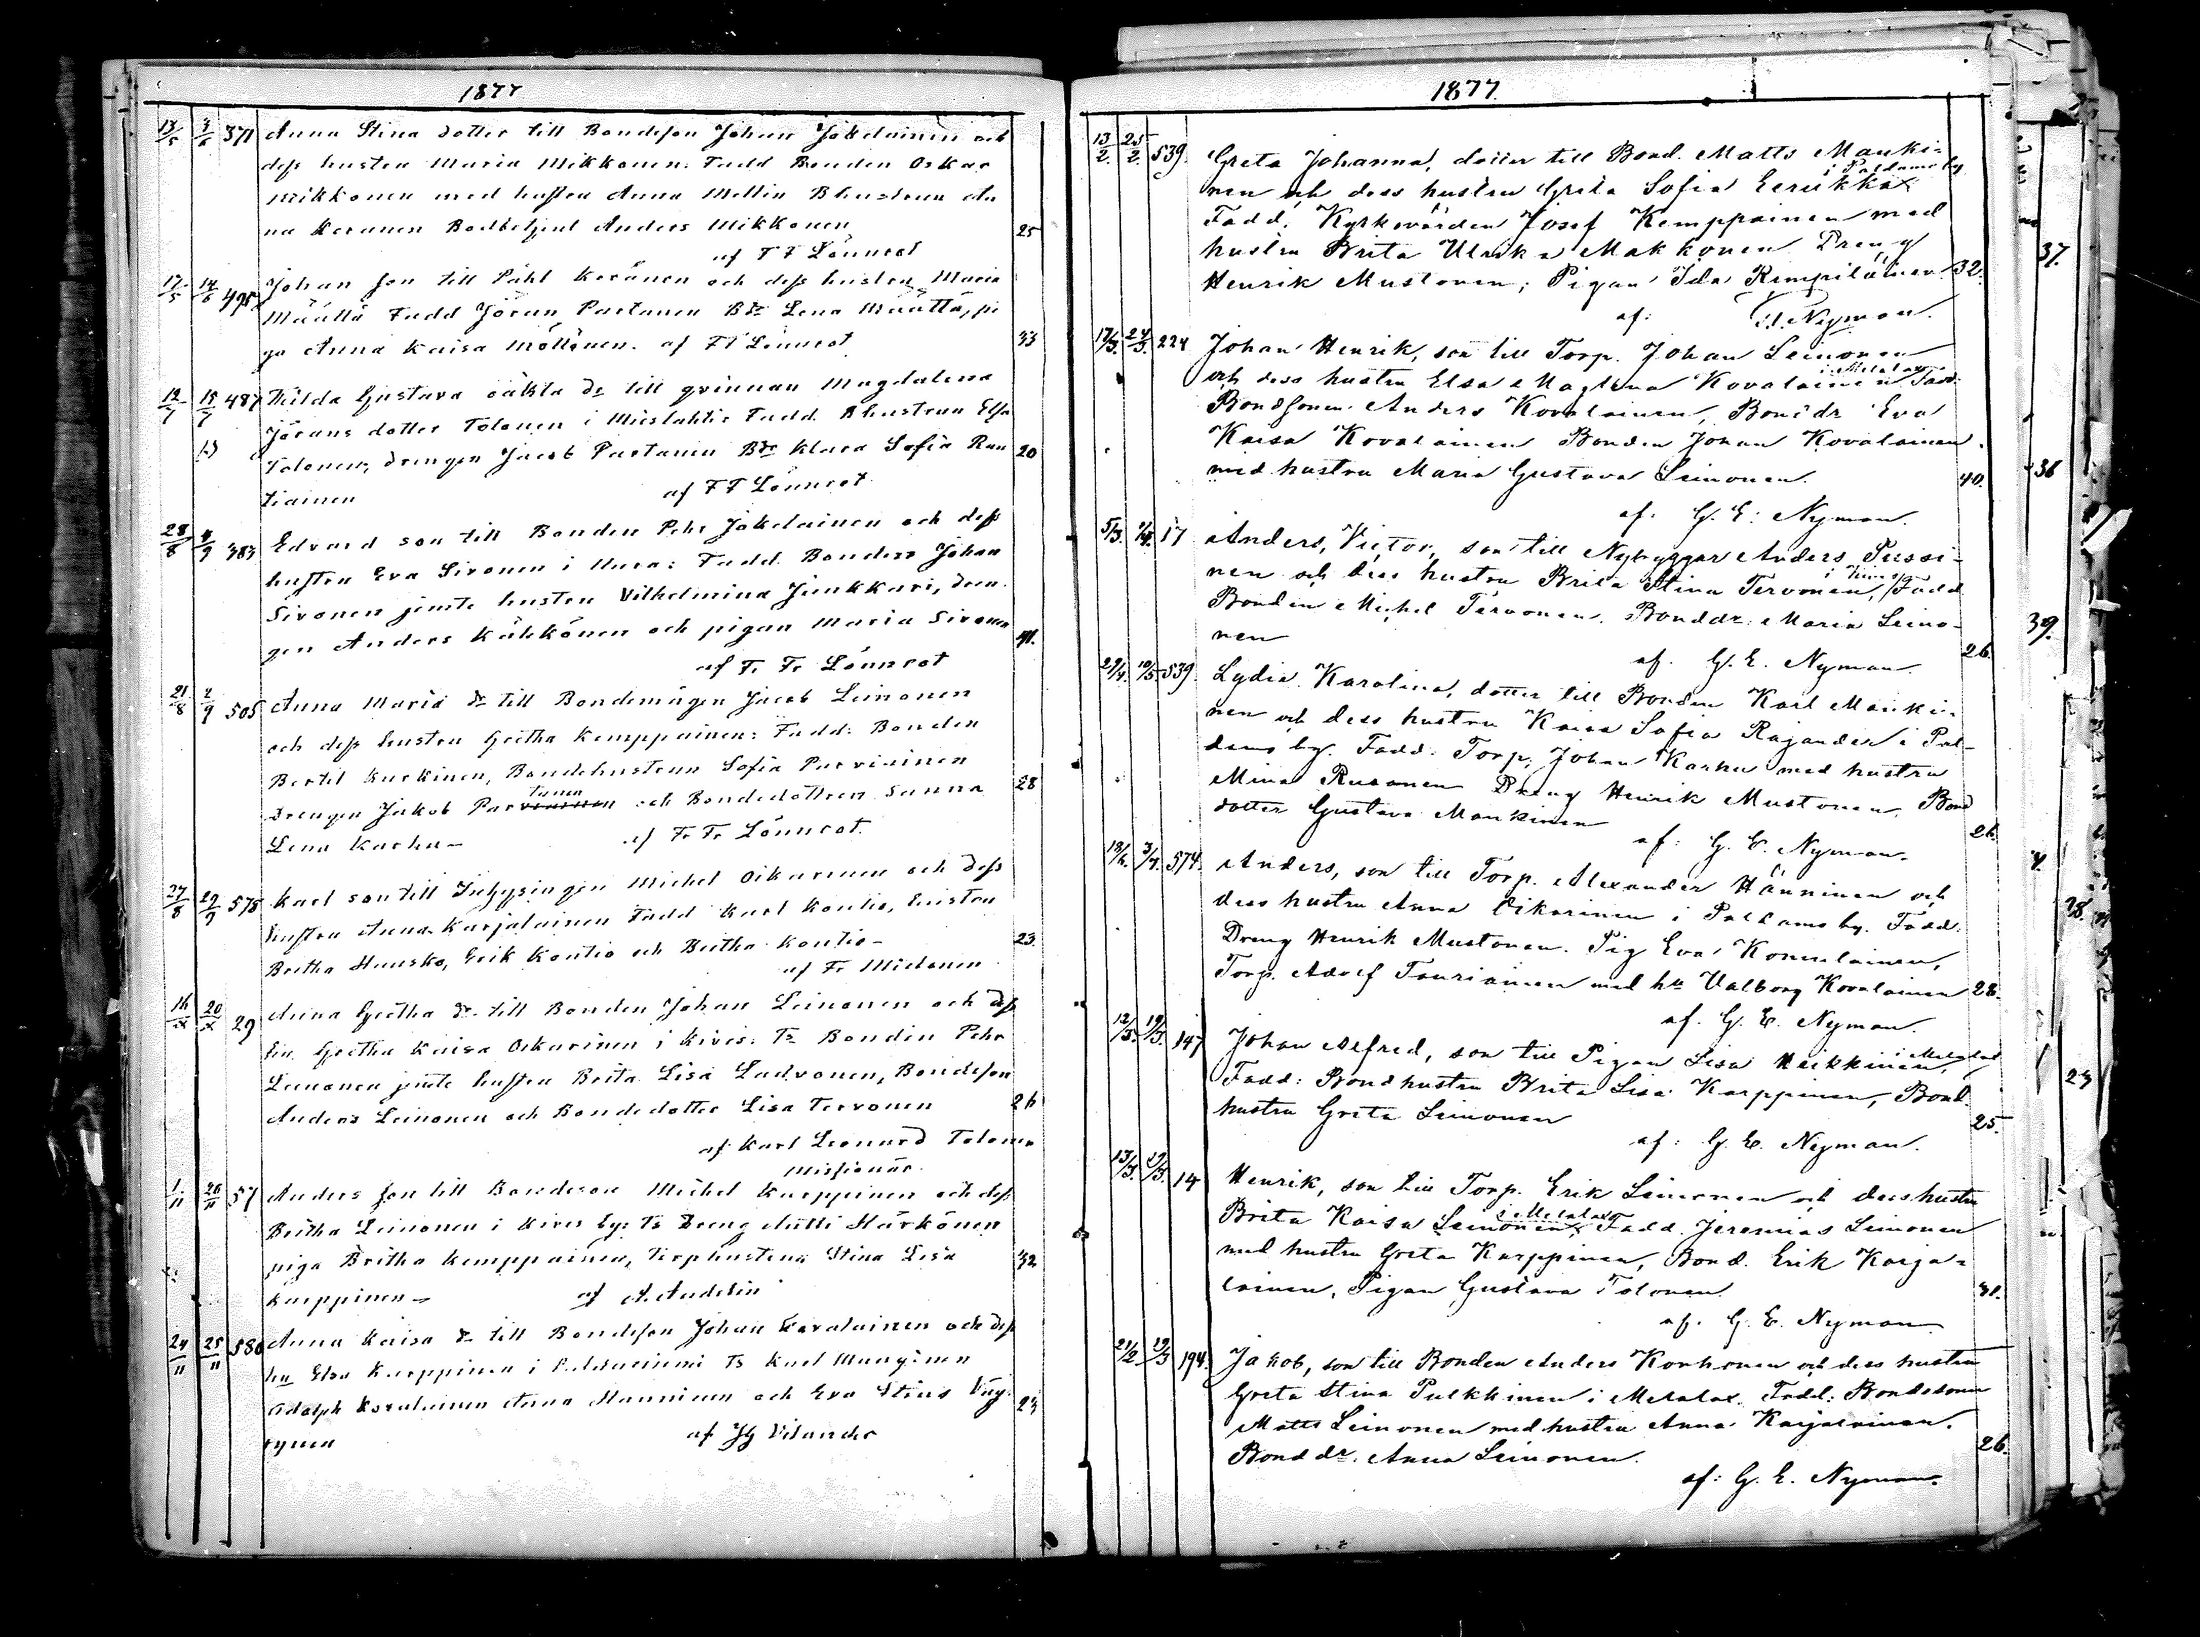 1877
13/5 3/6 371 Anna Stina dotter till Bondeson Johan Jokelainen och
dess hustru Maria Mikkonen: Fadd Bonden Oskar
Mikkonen med hustru Anna Mellin Bhustrun An
na Keranen Anders Mikkonen 25
af F F Lönnrot
17/5 14/6 495 Johan son till Påhl Keränen och dess hustru Maria
Määttä Fadd Jöran Partanen Bdr Lena Määttä, pi
ga Anna Kaisa Möttönen. af FF Lönnrot 33
12/7 15/7 487 Hilda Gustava oäkta dr till qvinnan Magdalena
Jörans dotter Tolonen i Mieslahti Fadd. Bhustrun Elsa
Tolonen, drengen Jacob Partanen Bdr Klara Sofia Rau 20
tiainen af FF Lönnrot
28/8 8/9 383 Edvard son till Bonden Pehr Jokelainen och dess
hustru Eva Sivonen i Fadd. Bonden Johan
Sivonen jemte hustru Vilhelmina Junkkari, dren
gen Anders Kähkönen och pigan Maria Sivonen 41.
af Fr Fr Lönnrot
21/8 2/9 505 Anna Maria dr till Bondemågen Jacob Leinonen
och dess hustru Gretha Kemppainen: Fadd: Bonden
Bertel Kurkinen, Bondehustrun Sofia Parviainen 28
tanen
Drengen Jakob Parviainen och Bondedottren Sanna
Lena Karhu – af Fr Fr Lönnrot.
27/8 29/9 575 Karl son till Inhysingen Michel Oikarinen och dess
hustru Anna Karjalainen Fadd Karl Kontio, Enistru
Britha Hausko, Erik Kontio och Britha Kontio – 23.
af Fr Mielonen
16/x 20/x 29 Anna Gretha dr till Bonden Johan Leinonen och dess
hu. Gretha Kaisa Oikarinen i Kives: Ts Bonden Pehr
Leinonen jemte hustru Brita Lisa Ladvonen, Bondeson
Anders Leinonen och Bondedotter Lisa Tervonen 26
af Karl Leonard Tolonen
Missionär.
1/11 26/11 57 Anders son till Bondeson Michel Karppinen och dess
Britha Leinonen i Kives by: Ts Dreng Antti Härkönen
piga Britha Kemppainen, Torphustrun Stina Lisa 32
Karppinen – af A. Andelin
24/11 25/11 580 Anna Kaisa dr till Bondeson Johan Kovalainen och dess
hu Elsa Karppinen i Ts Karl Manginen
Adolph Kovalainen Anna Hanninen och Eva Stina Väy 23
rynen af Jg Vilander
1877.
13/2. 25/2. 539. Greta Johanna, dotter till Bond. Matts Manki-
i Paldamo by
nen och dess hustru Greta Sofia Eerikkä
Fadd: Kyrkovärden Josef Kemppainen med
hustru Brita Ulrika Makkonen Dreng
Henrik Mustonen, Pigan Ida Kempiläinen 32.
af: G. Nyman.
17/3. 24/3. 224 Johan Henrik, son till Torp. Johan Leinonen
i Melalax
och dess hustru Elsa Maglena Kovalainen Fadd.
Bondsonen Anders Kovalainen, Bond dr Eva
Kaisa Kovalainen Bonden Johan Kovalainen
med hustru Maria Gustava Leinonen. 40.
af: G. E. Nyman.
5/3. 1/4. 17 Anders Victor, son till Nybyggar Anders Pussi-
i Kives by
nen och dess hustru Brita Stina Tervonen, Fadd
Bonden Michel Tervonen. Bonddr. Maria Leino-
nen 26.
af. G. E. Nyman.
29/4. 10/5. 539. Lydia Karolina, dotter till Bonden Karl Manki-
nen och dess hustru Kaisa Sofia Rajander i Pal-
damo by. Fadd. Torp. Johan Karhu med hustru
Mina Rusanen Dreng Henrik Mustonen. Bond
dotter Gustava Mankinen 26.
af: G. E. Nyman.
18/6. 3/7. 574. Anders, son till Torp. Alexander Hänninen och
dess hustru Anna Oikarinen i Paldamo by. Fadd:
Dreng Henrik Mustonen. Pig Eva Komulainen,
Torp. Adolf Tauriainen med hu Valborg Kovalainen 28.
af. G. E. Nyman.
12/3. 19/3. 147 Johan Alfred, son till Pigan Lisa Heikkinen,
i Melalax
Fadd: Bondhustru Brita Lisa Karppinen, Bond
hustru Greta Leinonen 25.
af: G. E. Nyman.
13/3. 19/3. 14 Henrik, son till Torp. Erik Leinonen och dess hustru
i Melalax
Brita Kaisa Leinonen, Fadd. Jeremias Leinonen
med hustru Greta Karppinen, Bond. Erik Karja-
lainen, Pigan Gustava Tolonen. 31.
af. G. E. Nyman
21/2. 19/3 194. Jakob, son till Bonden Anders Korhonen och dess hustru
Greta Stina Pulkkinen i Melalax. Fadd: Bondesonen
Matts Leinonen med hustru Anna Karjalainen.
Bond dr. Anna Leinonen. 26.
af: G. E. Nyman.
37.
36
39.
28.
23